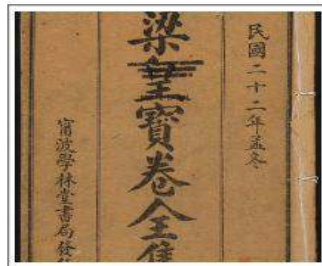 民國二十二年孟冬
梁皇寶卷全集
甯波學林堂書局發